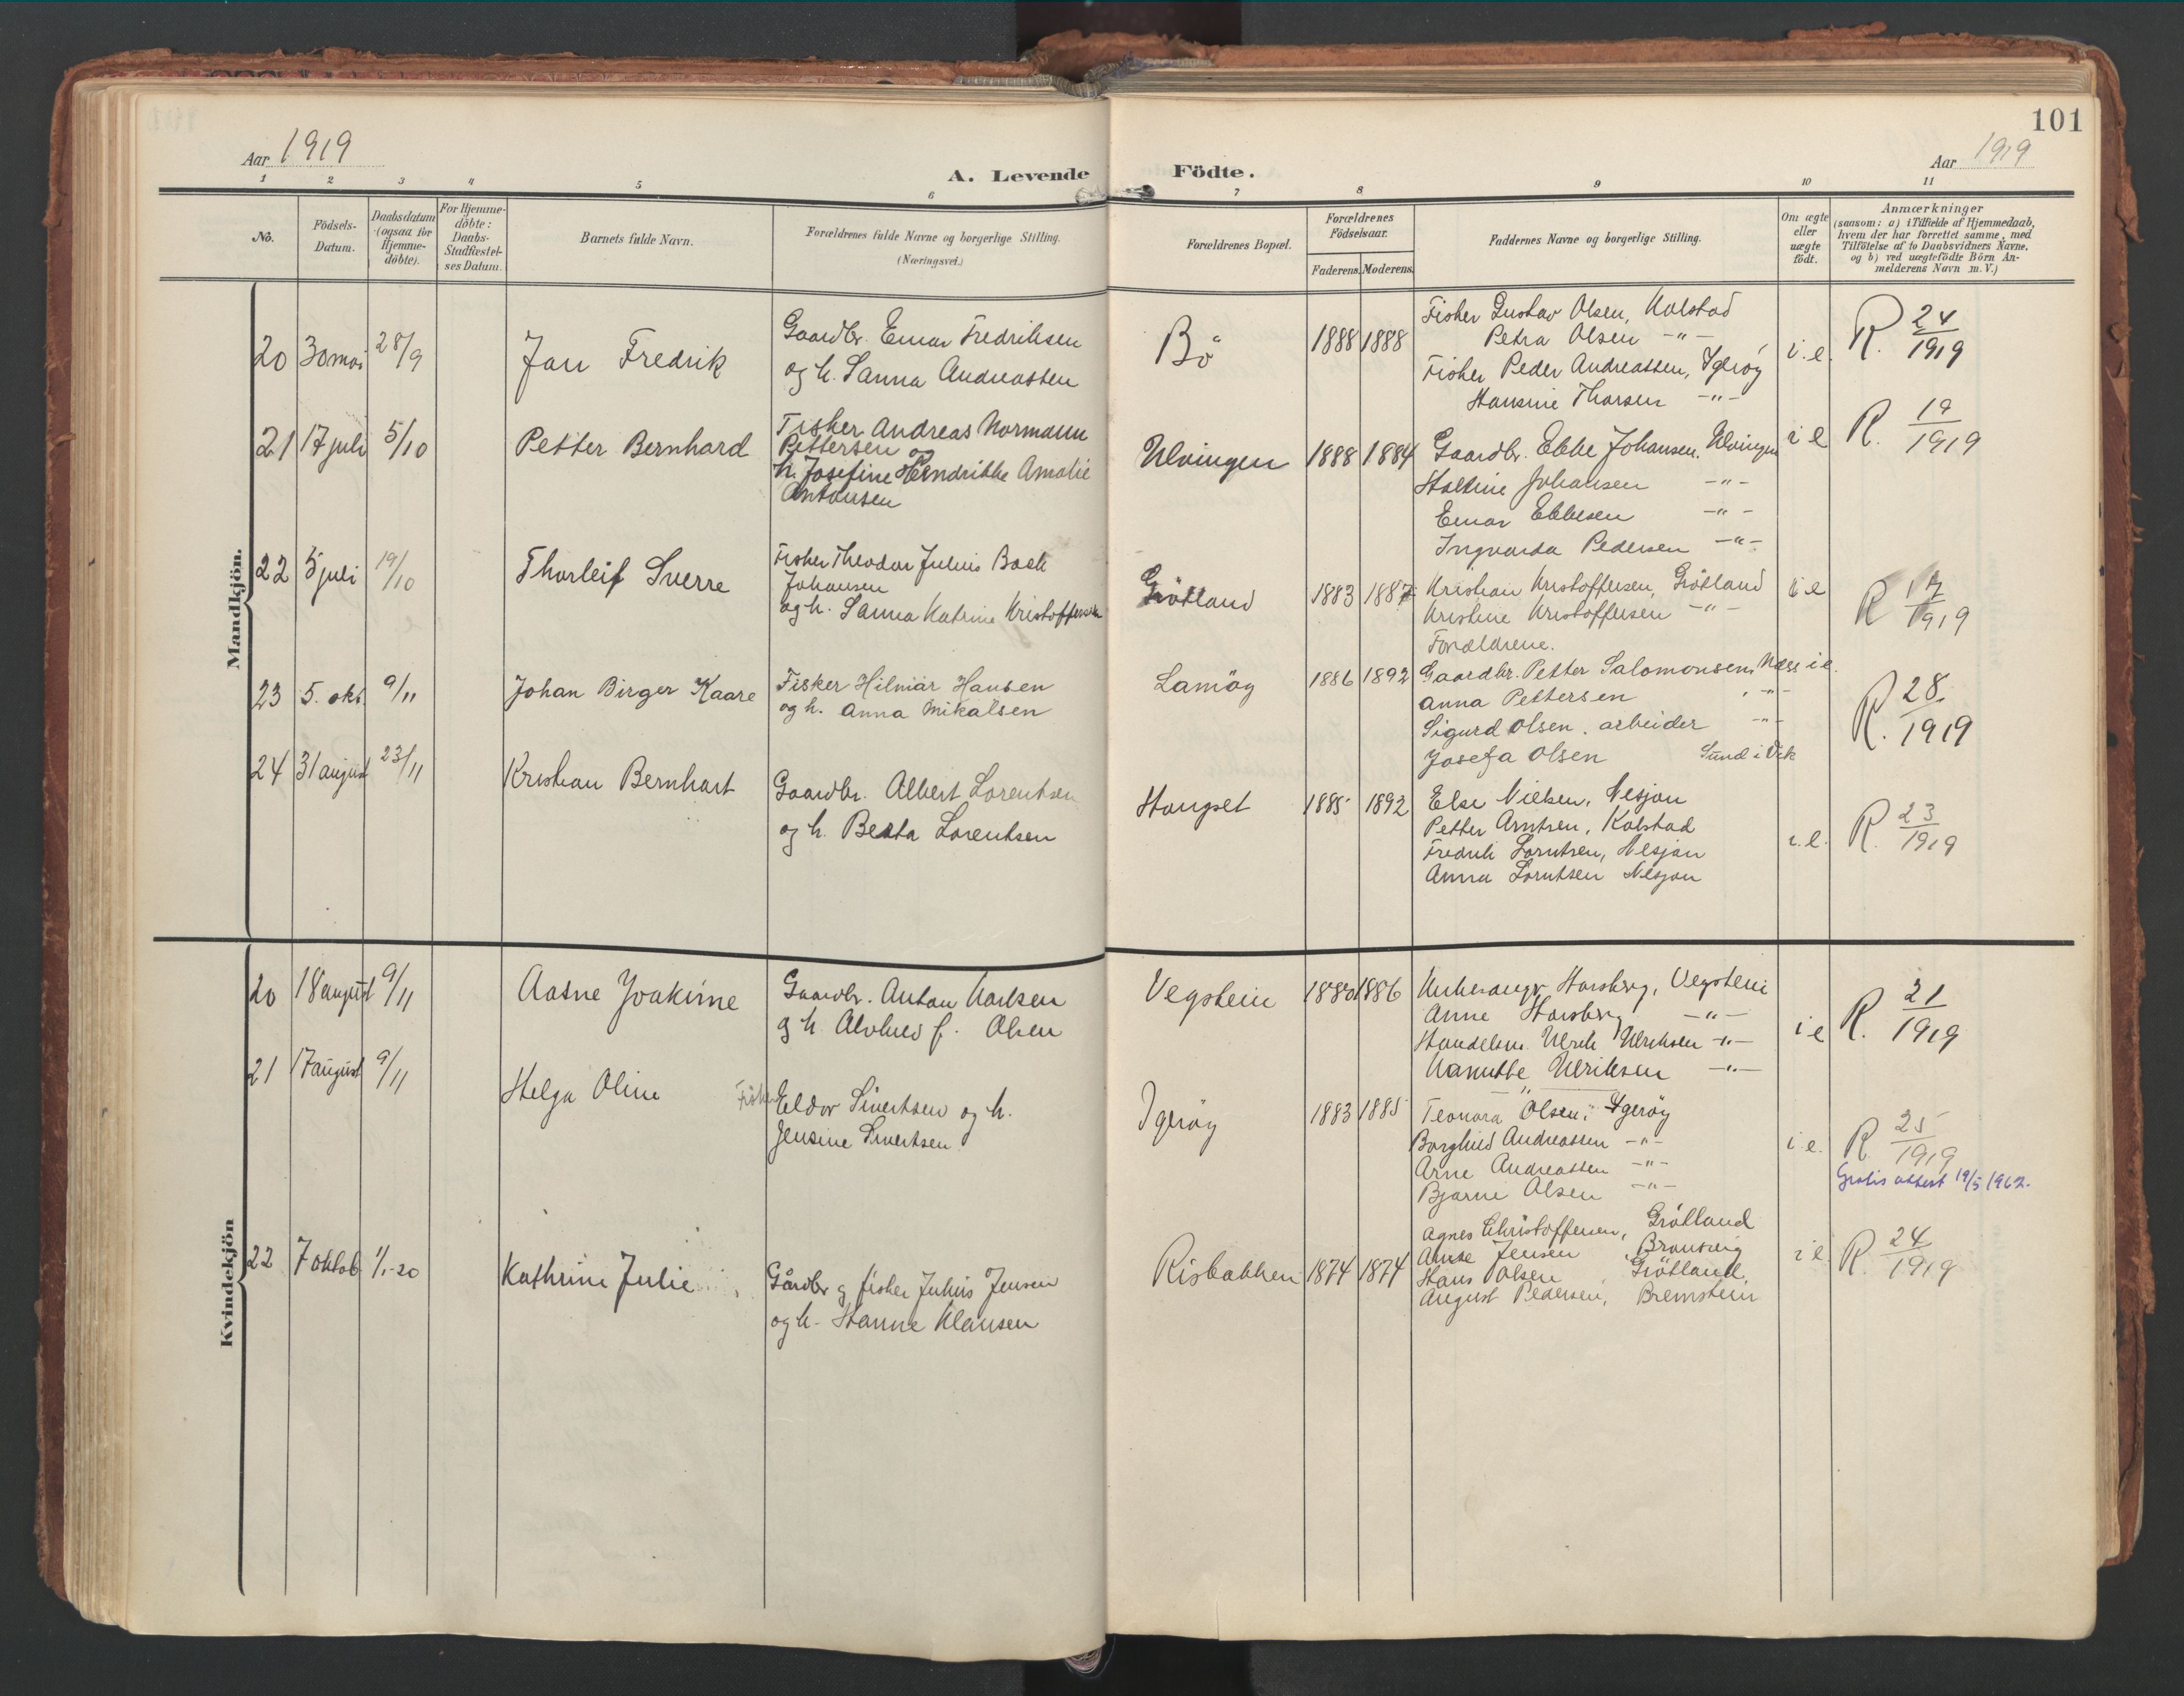 101
Aar 1919
Aar 1919
A. Levende Födte.
1 2 3 4 5 6 7 8 9 10 11
No.
Födsels-
Datum.
Daabsdatum
(ogsaa for
Hjemme-
döbte).
For Hjemme-
döbte:
Daabs-
Stadfæstel-
ses Datum.
Barnets fulde Navn.
Forældrenes fulde Navne og borgerlige Stilling.
(Næringsvei.)
Forældrenes Bopæl.
Forældrenes
Födselsaar.
Faderens. Moderens.
Faddernes Navne og borgerlige Stilling.
Om ægte
eller
uægte
födt.
Anmærkninger
(saasom: a) i Tilfælde af Hjemmedaab,
hvem der har forrettet samme, med
Tilföielse af to Daabsvidners Navne,
og b) ved uægtefödte Börn An-
melderens Navn m. V.)
Mandkjön.
20 30 mai 28/9
Jan Fredrik
Gaardbr. Einar Fredriksen
og h. Sanna Andreassen
Bö
1888 1888
Fisker Gustav Olsen, Kolstad
Petra Olsen -"-
Fisker Peder Andreassen, Igeröy
Hansine Thorsen -"-
i. e.
R. 24/1919
21 17 juli 5/10
Petter Bernhard
Fisker Andreas Normann
Pettersen og
h. Josefine Hendrikke Amalie
Antonsen
Ulvingen
1888 1884
Gaardbr. Ebbe Johansen, Ulvingen
Haldine Johansen -"-
Einar Ebbesen -"-
Ingvarda Pedersen -"-
i e
R. 19/1919
22 5 juli 19/10
Thorleif Sverre
Fisker Theodor Julius Bach
Johansen
og h. Sanna Katrine Kristoffersen
Grötland
1883 1887
Kristian Kristoffersen, Grötland
Kristine Kristoffersen -"-
Forældrene.
i e
R 17/1919
23 5. okt. 9/11
Johan Birger Kaare
Fisker Hilmar Hansen
og h. Anna Mikalsen
Lamöy
1886 1892
Gaardbr. Petter Salomonsen, Næss
Anna Pettersen -"-
Sigurd Olsen, arbeider -"-
Josefa Olsen Sund i Vik
i e.
R. 28/1919
24 31 august 23/11
Kristian Bernhart
Gaardbr. Albert Lorentsen
og h. Berta Lorentsen
Hongset
1885 1892
Else Nielsen, Nesjan
Petter Arntsen, Kolstad
Fredrik Lorntsen, Nesjan
Anna Lorntsen Nesjan
i. e.
R. 23/1919
Kvindekjön
20 18 august 9/11
Aasne Joakime
Gaardbr. Anton Karlsen
og h. Alvhild f. Olsen
Vegstein
1880 1886
Horsberg, Vegstein
Anne Horsberg -"-
Handelsm. Ulrik Ulriksen -"-
Ulriksen -"-
i e
R. 21/1919
21 17 august 9/11
Helga Oline
Fisker Eldor Sivertsen og h.
Jensine Sivertsen
Igeröy
1883 1885
Leonora Olsen, Igeröy
Borghild Andreassen -"-
Arne Andreassen -"-
Bjarne Olsen -"-
i e.
R. 25/1919
Gratis attest 19/5 1962.
22 7 oktob 1/1-20
Kathrine Julie
Gårdbr og fisker Julius Jensen
og h. Hanne Klausen
Risbakken
1874 1874
Agnes Christoffersen, Grötland
Anne Jensen,
Hans Olsen, Grötland,
August Pedersen, Bremstein
i e
R. 24/1919